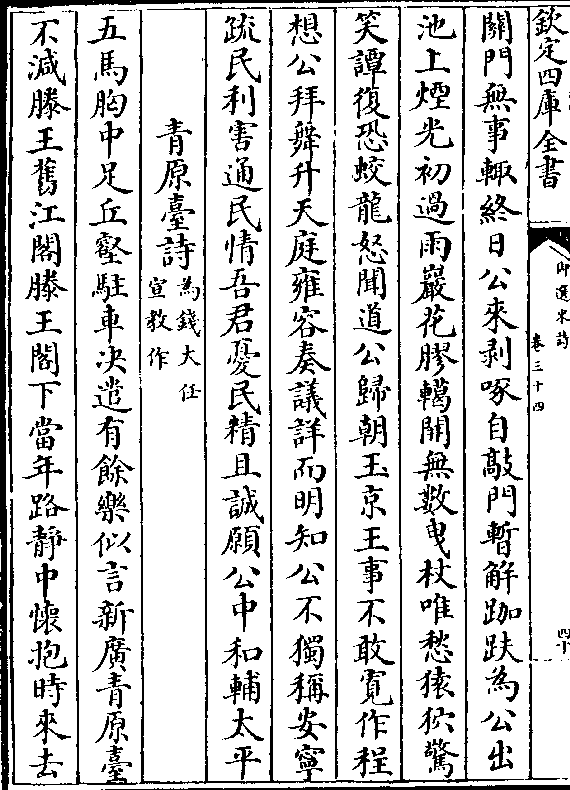 欽定四庫全書
御選宋詩
卷三十四
四十
關門無事輒終日公來剥啄自敲門暫解跏趺為公出
池上煙光初過雨巖花膠轕開無數曳杖唯愁猿狖驚
笑譚復恐蛟龍怒聞道公歸朝玉京王事不敢寛作程
想公拜舞升天庭雍容奏議詳而明知公不獨稱安寧
疏民利害通民情吾君憂民精且誠願公中和輔太平
青原臺詩
為錢大任
宣教作
五馬胸中足丘壑駐車决遣有餘樂似言新廣青原臺
不減滕王舊江閣滕王閣下當年路靜中懷抱時來去